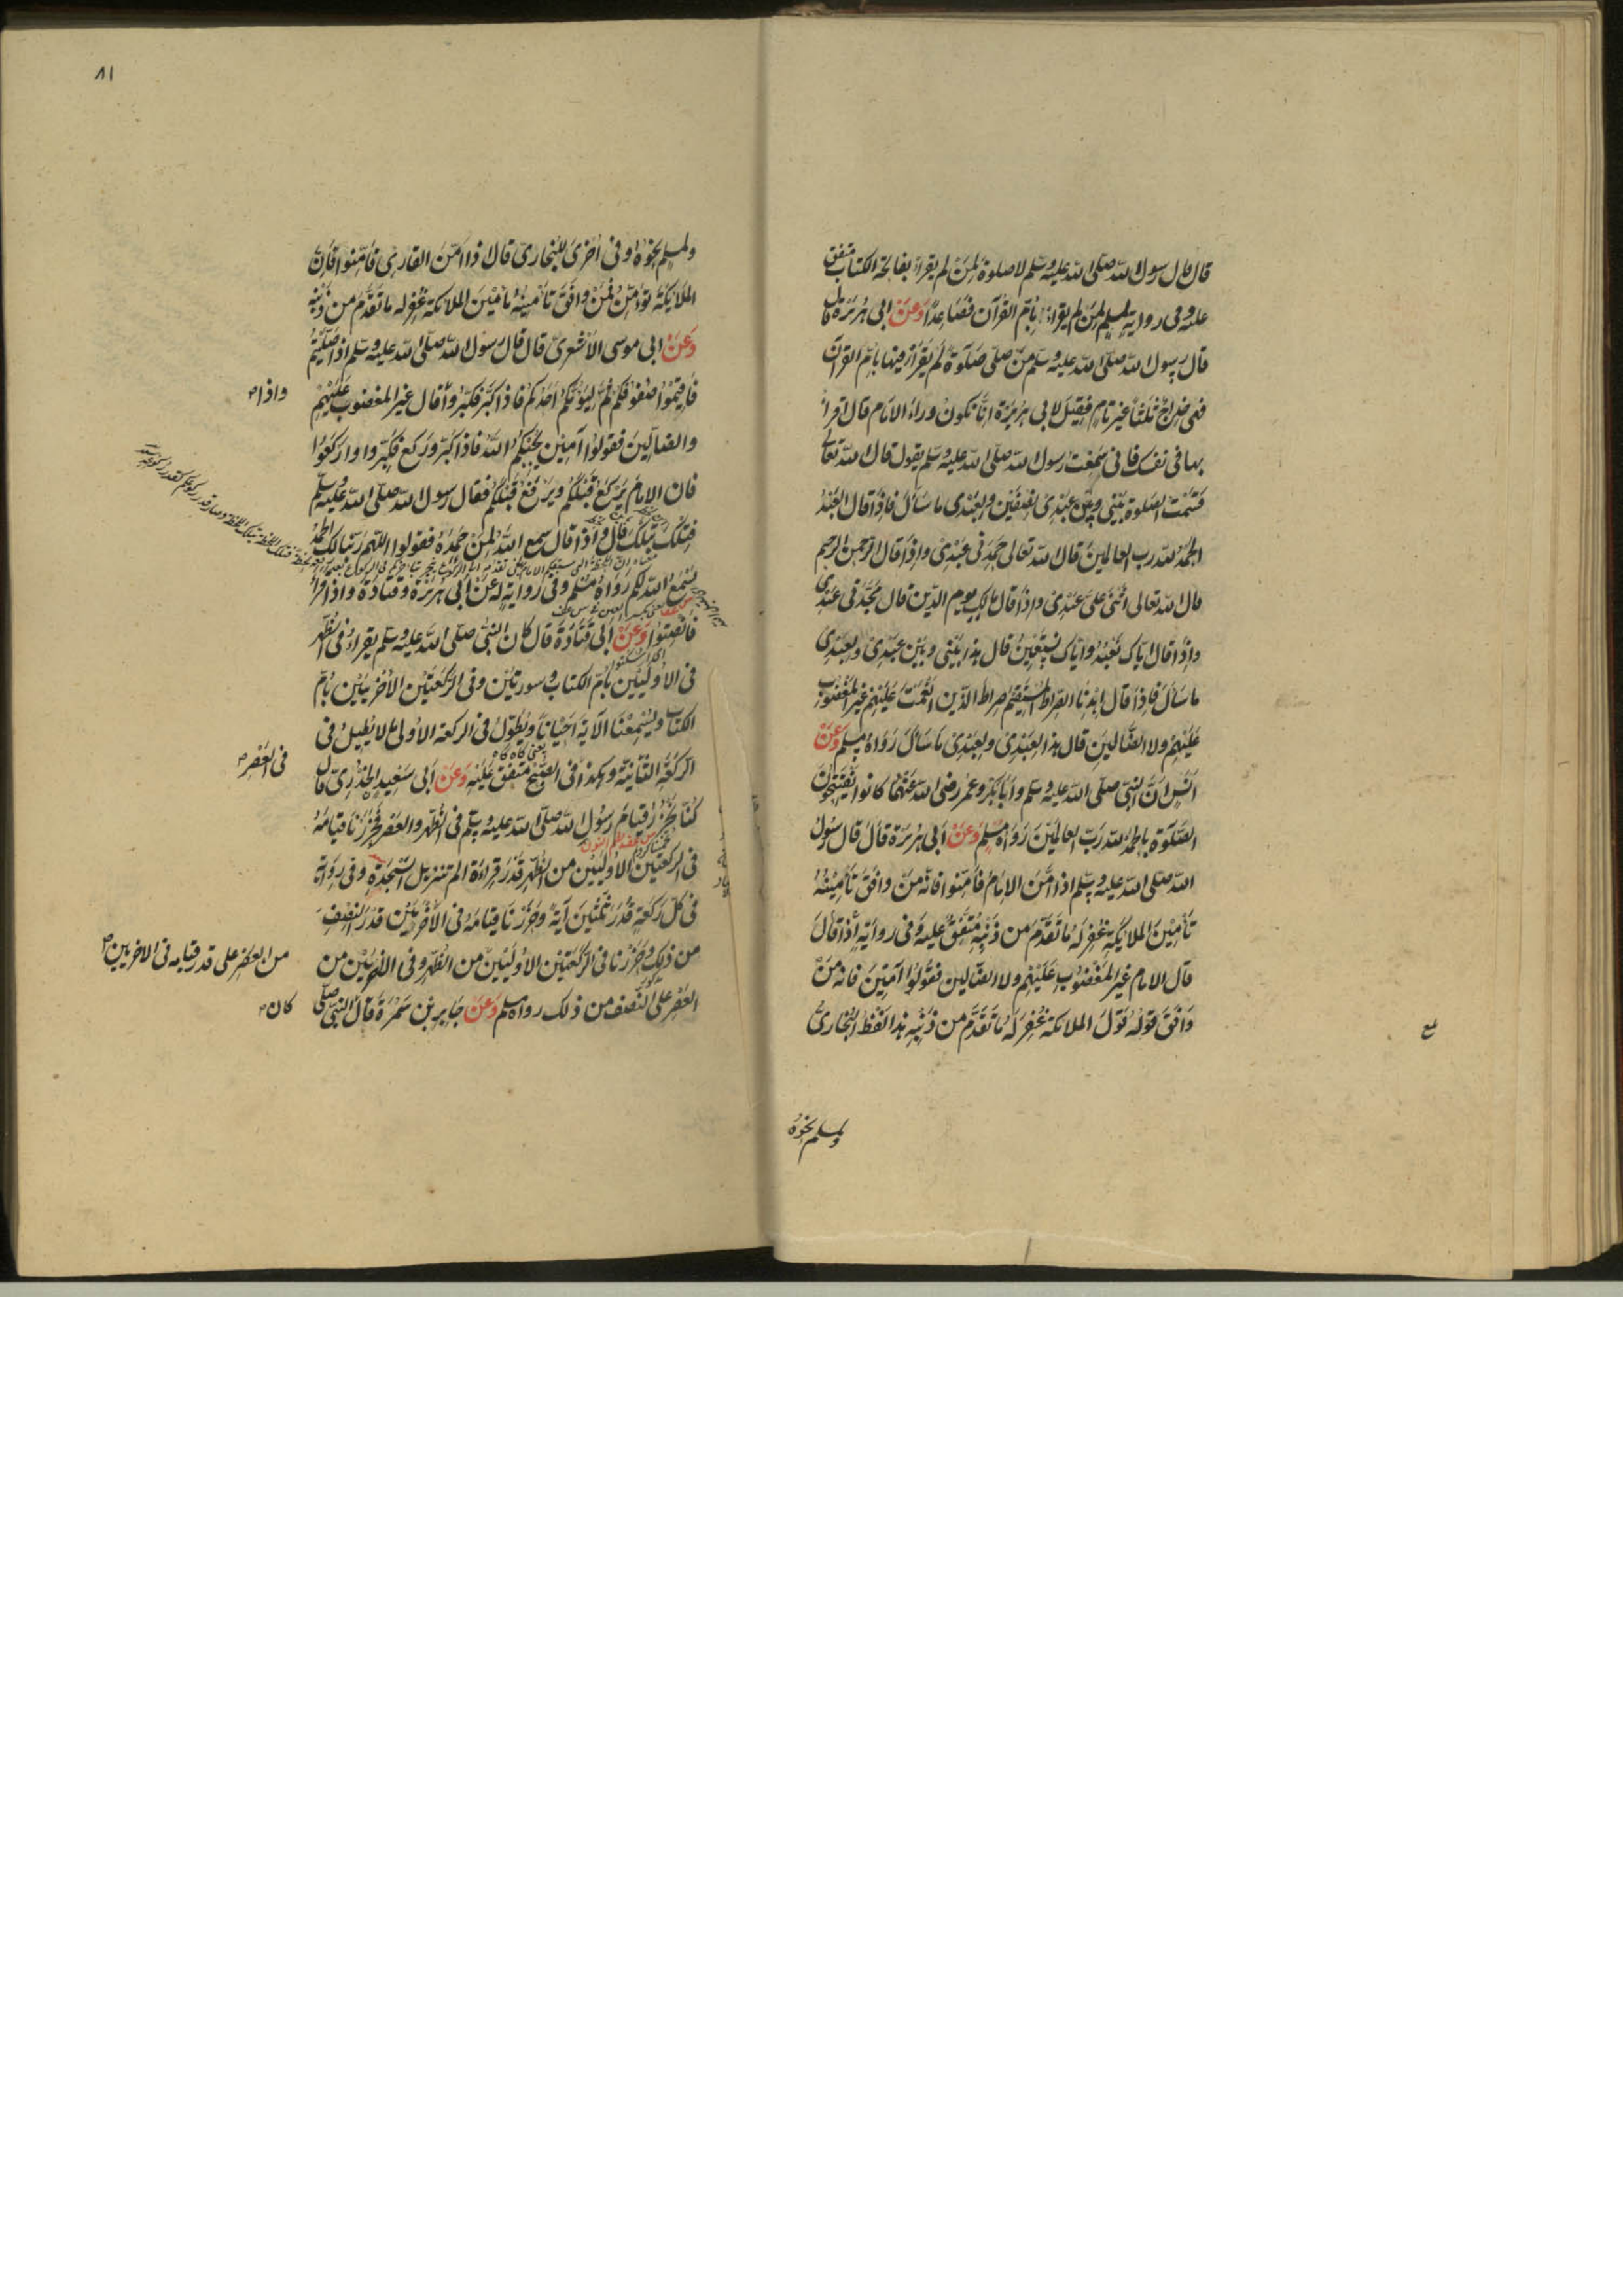 قال قال رسول الله صلى الله عليه وسلم لا صلوة لمن لم يقرا بفاتحة الكتاب متفق
عليه وفى رواية لمسلم لمن لم يقرا بِاُمّ القرآن فصَاعدًا وَعَنْ ابى هُرَيْرَة قال
قال رسول الله صلى الله عليه وسلم منْ صلّى صَلوةً لم يَقرَأ فيها بامّ القرآن
فهى خِداجٌ ثلثًا غير تامٍ فقِيْلَ لابى هريرة اِنّا نكونُ وراءَ الامَام قال اقرا
بها فى نفسك فانى سَمِعْتُ رسول الله صلى الله عليه وسلم يقول قال الله تعالى
قسَمْتُ الصلوة بَيْنِى وبين عبْدِى نِصْفَيْن ولِعَبْدِى ما سَأل فاِذَا قال العَبْدُ
الحمدُ لله رب العالمينَ قال الله تعالى حمِدَنى عَبْدِى واِذا قال الرّحمن الرحيم
قال الله تعالى اَثْنى عَلىّ عَبْدِى واِذَا قال مالك يوم الدّين قال مَجّدَنى عَبْدِى
واِذَا قال اياك نعْبُدُ واياك نسْتعِينُ قال هذا بَيْنِى وبَيْن عَبْدِى ولِعَبْدِى
ما سَألَ فاِذَا قال اِهْدنا الصّراط المُسْتقِيمَ صِراط الّذين انْعَمْتَ عَلَيْهِم غير المغضُوبِ
عَلَيْهِمْ ولا الضّالينَ قال هذا لِعَبْدِى ولِعَبْدِى مَا سَألَ رَوَاهُ مسلم وَعَنْ
اَنَسٍ اَنّ النبىّ صلى الله عليه وسلم وأبَا بَكْرٍ وعمر رضى الله عَنْهُمَا كانوا يَفتَتِحُونَ
الصّلوة بالحمدُ لله رَبّ العالَمِيْنَ رَوَاهُ مسْلِم وَعَنْ اَبى هُرَيْرَة قال قال رسُول
الله صلى الله عليه وسلم اِذا اَمّنَ الاِمَامُ فَاَمِّنوا فانّه مَنْ وافَقَ تَأمِيْنُهُ
تَأمِيْنَ الملائكة غُفِرَ لَهُ مَا تَقدّمَ من ذَنْبِهِ مُتّفَقٌ عليه وَفى روايَةٍ اِذَا قالَ
قال الامام غير المَغْضُوْبِ عَلَيْهِم ولا الضّالين فَقُولُوا آمِيْنَ فانّه مَنْ
وَافَقَ قوْلُه قَوْلَ الملائكة غُفِرَ لَهُ مَا تَقدّم من ذَنْبِه هذا لَفْظُ البُخَارىّ
ولمسلم نحوُهُ
٨١
ولمسلم نحوُهُ وفى اُخرَى للبُخارى قال اذا امّنَ القارِى فَامِّنوا فَاِنّ
الملائكة تؤمّنُ فمَنْ وافَقَ تَأمِيْنُهُ تَأمِيْنَ الملائكة غُفِرَ له ما تقدّمَ من ذَنْبِه
وَعَنْ ابى موسى الاشعرىّ قال قال رسُول الله صلى الله عليه وسلم اذا صَلّيْتُمْ
فَاقيْمُوا صُفُوفكُمْ ثمّ ليؤمّكم اَحَدُكم فَاذا كبّر فكبّرُوا قال غير المغضوبِ عَلَيْهِمْ
واذا
والضالّينَ فقولوا آمِيْن يُجِبْكمُ اللهُ فاذا كبّر وركع فكبّروا واركعُوا
فان الامامَ يَرْكعُ قبْلَكُم ويَرْفعُ قبْلكم فقال رسول الله صلى الله عليه وسلم
فتلك بتلك قال وَاِذَا قال سمع الله لِمَنْ حَمِدَهُ فقولوا اللهم ربنا لك الحمدُ
يَسْمَعُ الله لكم رَوَاهُ مُسْلم وفى رواية له عن ابى هُرَيْرَة وقتادَة واذا قرا
فَانْصِتُوا وَعَنْ اَبى قَتَادَةَ قال كان النبى صلى الله عليه وسلم يقراُ فى الظّهر
فى الاُولَيَيْن بامّ الكتاب وسورتيْن وفى الرَكْعَتَيْن الاُخرَيَيْن بامّ
الكتاب ويُسْمِعُنَا الآية اَحْيَاناً ويُطَوّلُ فى الركعة الاُولى ما لا يُطِيْلُ فى
الركعَةِ الثّانِيَة وهكذا فى الصّبح متّفق عَلَيْهِ وَعَنْ اَبى سَعِيْد الخدرىّ قال
يعنى كاه كاه
فى العَصْرِ
كنّا نَحْزُرُ قيَامَ رَسُول الله صلى الله عليه وسلم فى الظهر والعَصْر فحَزَرْنَا قيامَهُ
فى الركعتين الاُولَيَيْن من الظهر قدْرَ قِراءَة الم تنزيل السّجدَة وفى رِوَايَة
فى كلّ رَكعَةٍ قَدْرَ ثلثِيْنَ آيَةً وَحَزَرْنَا قِيَامَهُ فى الاُخْرَيَيْن قدْرَ النّصْفِ
من ذلِك وحَزَرْنا فى الرّكْعَتَيْن الاُولَيَيْن من العصر على قدر قيامه فى الاخريين من الظهر وفى الاُخْرَيَيْن من
العَصْر على النّصف من ذلك رواه مسلم وَعَنْ جَابِر بن سَمُرَة قال النبى صلّى
كان